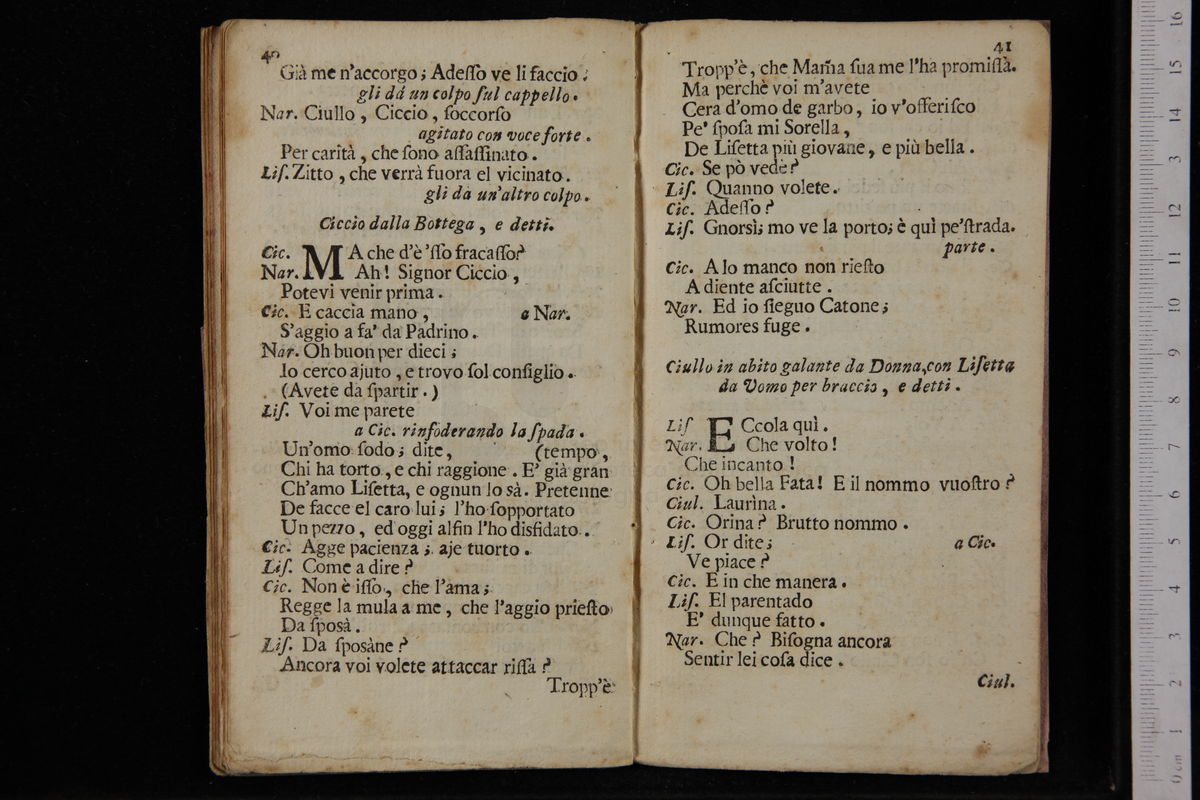 40
Già me n'accorgo; Adeſſo ve li faccio.
gli dà un colpo ſul cappello.
Nar. Ciullo, Ciccio, ſoccorſo
agitato con voce forte.
Per carità, che ſono aſſaſſinato.
Liſ. Zitto, che verrà fuora el vicinato.
gli da un'altro colpo.
Ciccio dalla Bottega, e detti.
Cic. MA che d'è 'ſſo fracaſſo?
Nar. Ah! Signor Ciccio,
Potevi venir prima.
Cic. E caccia mano, a Nar.
S'aggio a fa' da Padrino.
Nar. Oh buon per dieci;
Io cerco ajuto, e trovo ſol conſiglio.
(Avete da ſpartir.)
Liſ. Voi me parete
a Cic. rinfoderando la ſpada.
Un'omo ſodo; dite, (tempo,
Chi ha torto, e chi raggione. E' già gran
Ch'amo Liſetta, e ognun lo sà. Pretenne
De facce el caro lui; l'ho ſopportato
Un pezzo, ed oggi alfin l'ho disfidato.
Cic. Agge pacienza; aje tuorto.
Liſ. Come a dire?
Cic. Non è iſſo, che l'ama;
Regge la mula a me, che l'aggio prieſto
Da ſposà.
Liſ. Da ſposàne?
Ancora voi volete attaccar riſſa?
Tropp'è
41
Tropp'è, che Mam̃a ſua me l'ha promiſſa.
Ma perchè voi m'avete
Cera d'omo de garbo, io v'offeriſco
Pe' ſpoſa mi Sorella,
De Liſetta più giovane, e più bella.
Cic. Se pò vedè?
Liſ. Quanno volete.
Cic. Adeſſo?
Liſ. Gnorsì; mo ve la porto; è quì pe'ſtrada.
parte.
Cic. A lo manco non rieſto
A diente aſciutte.
Nar. Ed io ſieguo Catone;
Rumores fuge.
Ciullo in abito galante da Donna, con Liſetta
da Vomo per braccio, e detti.
Liſ ECcola quì.
Nar. Che volto!
Che incanto!
Cic. Oh bella Fata! E il nommo vuoſtro?
Ciul. Laurìna.
Cic. Orina? Brutto nommo.
Liſ. Or dite; a Cic.
Ve piace?
Cic. E in che manera.
Liſ. El parentado
E' dunque fatto.
Nar. Che? Biſogna ancora
Sentir lei coſa dice.
Ciul.
16
15
14
13
12
11
10
9
8
7
6
5
4
3
2
1
0 cm